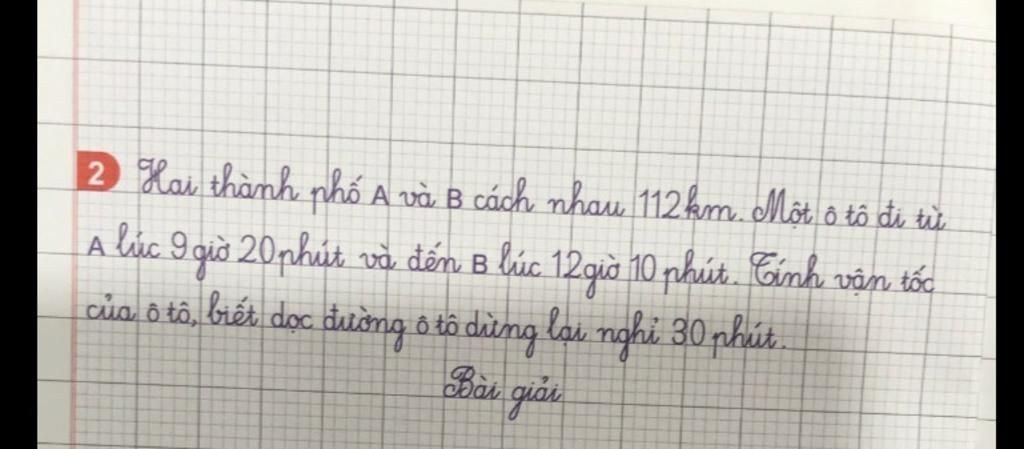 2 Hai thành phố A và B cách nhau 112km. Một ô tô đi từ
A lúc 9 giờ 20 phút và đến B lúc 12 giờ 10 phút. Tính vận tốc
của ô tô, biết dọc đường ô tô dừng lại nghỉ 30 phút.
Bài giải